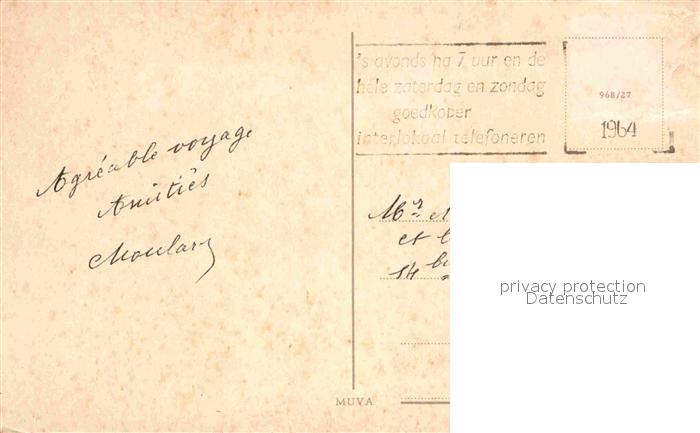 Agréable voyage
Amitiés
's avonds na 7 uur en de
hele zaterdag en zondag
goedkoper
interlokaal telefoneren
968/27
1964
Mr
et
14
privacy protection
Datenschutz
MUVA